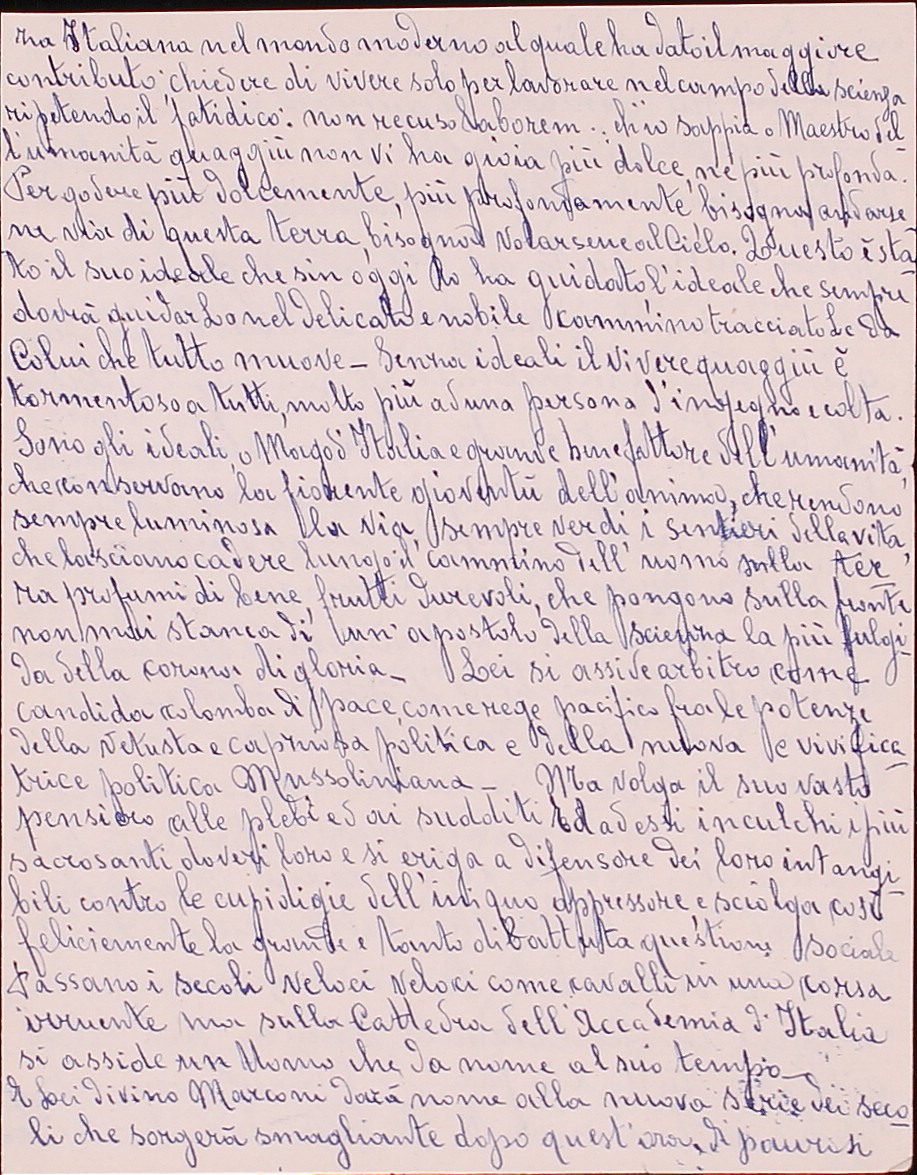 ra Italiana nel mondo moderno al quale ha dato il maggiore
contributo: chiedere di vivere solo per lavorare nel campo della scienza
ripetendo il fatidico: non recuso laborem.. ch'io sappia o Maestro del
l'umanità quaggiù non vi ha gioia più dolce, nè più profonda.
Per godere più dolcemente, più profondamente bisogna andarse
ne via di questa terra, bisogna volarsene al Cielo. Questo è sta
to il suo ideale che sin oggi Lo ha guidato l'ideale che sempre
dovrà guidarLo nel delicato e nobile cammino tracciatoLe da
Colui che tutto muove_ Senza ideali il vivere quaggiù è
tormentoso a tutti, molto più ad una persona d'ingegno e colta.
Sono gli ideali, o Mago d'Italia e grande benefattore dell'umanità,
che conservano la fiorente gioventù dell'anima, che rendono
sempre luminosa la via, sempre verdi i sentieri della vita
che lasciano cadere lungo il cammino dell'uomo sulla ter
ra profumi di bene, frutti durevoli, che pongono sulla fronte
non mai stanca di un'apostolo della scienza la più fulgi
da della corona di gloria_ Lei si asside arbitro come
candida colomba di pace, come rege pacifico fra le potenze
della vetusta e capricciosa politica e della nuova e vivifica
trice politica Mussoliniana_ Ma volga il suo vasto
pensiero alle plebi ed ai sudditi ed ad essi inculchi i più
sacrosanti doveri loro e si eriga a difensore dei loro intangi
bili contro le cupidigie dell'iniquo oppressore e sciolga così
feliciemente la grande e tanto dibattuta questione sociale
Passano i secoli veloci veloci come cavalli in una corsa
irruente ma sulla Cattedra dell'Accademia d'Italia
si asside un Uomo che da nome al suo tempo_
E Lei divino Marconi darà nome alla nuova serie dei seco
li che sorgerà smagliante dopo quest'ora di paurosi